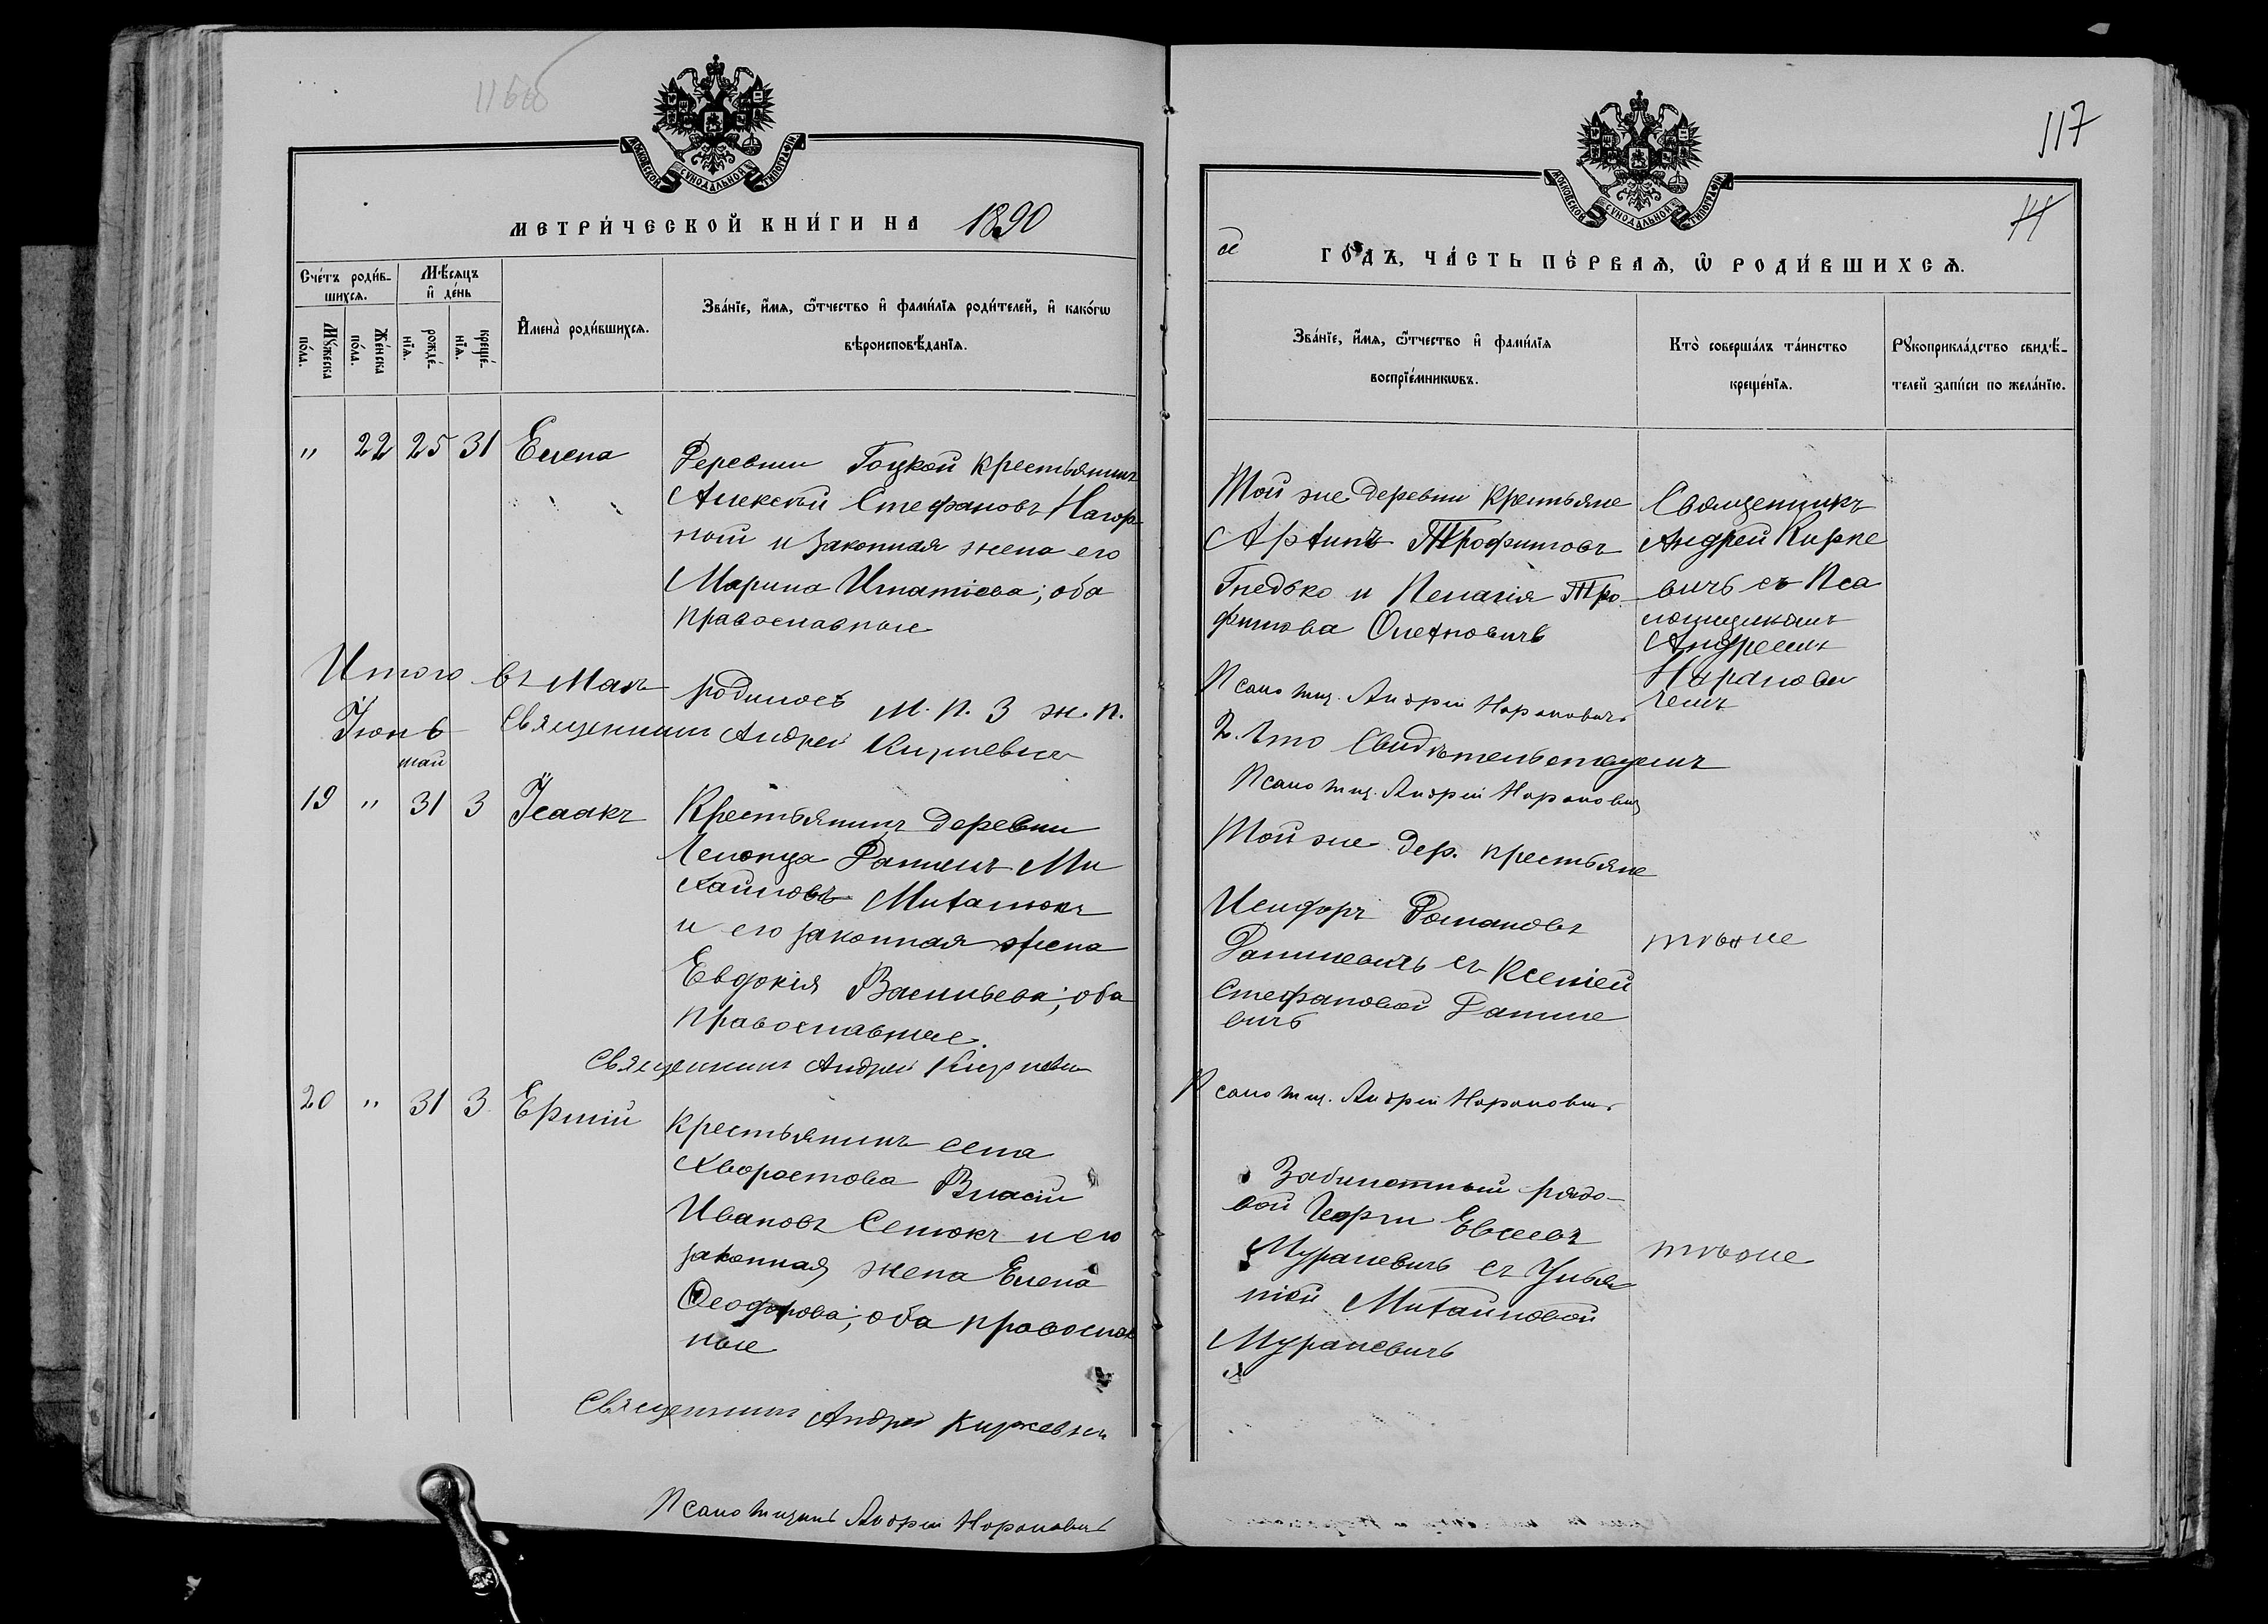 117
МОСКОВСКОЙ СѴНОДАЛЬНОЙ ТИПОГРАФІИ
МЕТРИ́ЧЕСКОЙ КНИ́ГИ НА 1890
Сче́тъ роди́в-
шихсѧ.
Мѣ́сѧцъ
и҆ де́нь
Мꙋ́жеска
по́ла.
Же́нска
по́ла.
рожде́-
нїѧ.
креще́-
нїѧ.
И҆мена̀ роди́вшихсѧ.
Зва́нїе, и҆́мѧ, ѻ҆́тчество и҆ фами́лїѧ роди́телей, и҆ како́гѡ
вѣроисповѣ́данїѧ.
" 22 25 31 Елена
Деревни Гоцкой крестьянинъ
Алексѣй Стефановъ Нагор-
ный и законная жена его
Марина Игнатіева; оба
православные
Итого въ Маѣ родилось м. п. 3 ж. п.
Священникъ Андрей Киркевич
Іюнь
май
19 " 31 3 Ісаакъ
Крестьянинъ деревни
Даніилъ Ми
хайловъ Михалюкъ
и его законная жена
Евдокія Васильева; оба
православные.
Священникъ Андрей Киркевич
20 " 31 3 Ермій
Крестьянинъ села
Хворостова Власій
Ивановъ Семюкъ и его
законная жена Елена
Ѳеодорова; оба православ
ные
Священникъ Андрей Киркевич
Псаломщикъ Андрей Наронович
МОСКОВСКОЙ СѴНОДАЛЬНОЙ ТИПОГРАФІИ
й ГО́ДЪ, ЧА́СТЬ ПЕ́РВАѦ, Ѡ҆ РОДИ́ВШИХСѦ.
Зва́нїе, и҆́мѧ, ѻ҆́тчество и҆ фами́лїѧ
воспрїе́мникѡвъ.
Кто̀ соверша́лъ та́инство
креще́нїѧ.
Рꙋкоприкла́дство свидѣ́-
телей за́писи по жела́нїю.
Той же деревни крестьяне
Архипъ Трофимовъ
Гнедько и Пелагія Тро-
фимова Олехновичъ
Священникъ
Андрей Кирке
вичъ съ Пса
ломщикомъ
Андреемъ
Наронови
чемъ
Псаломщ. Андрей Наронович
2. Что свидѣтельствуемъ
Псаломщ. Андрей Наронович
Той же дер. крестьяне
Исидоръ Романовъ
Данилевичъ съ Ксеніей
Стефановой Даниле
вичъ
тѣже
Псаломщ. Андрей Наронович
Забилетный рядо-
вой Георгій Евсеевъ
Мураневичъ съ Улья
ніей Михайловой
Мураневичъ
тѣже